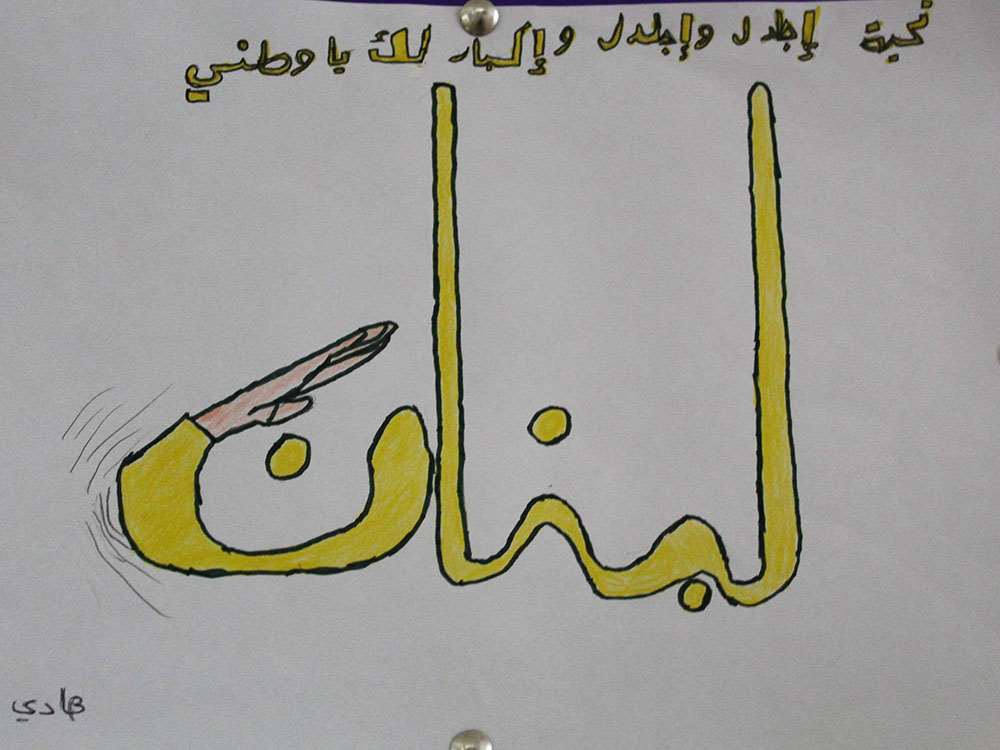 تحية إجلال وإجلال وإكبار لك يا وطني
لبنان
هادي